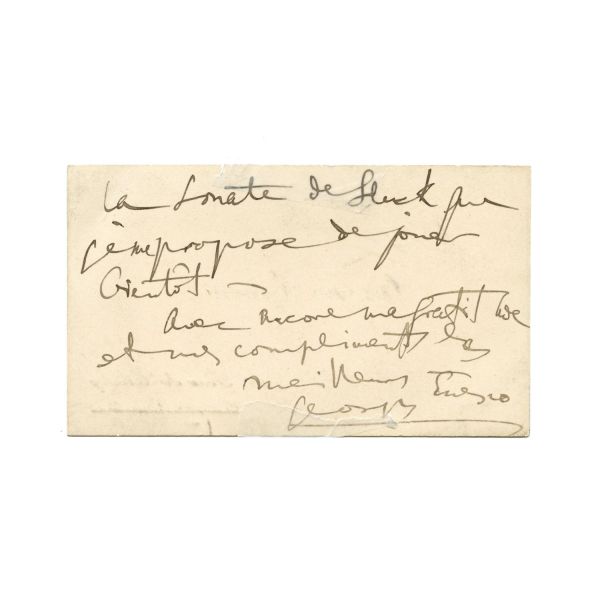 la Sonate de Gluck que
je me propose de jouer
bientôt —
Avec encore ma gratitude
et mes compliments les
meilleurs
Georges Enesco